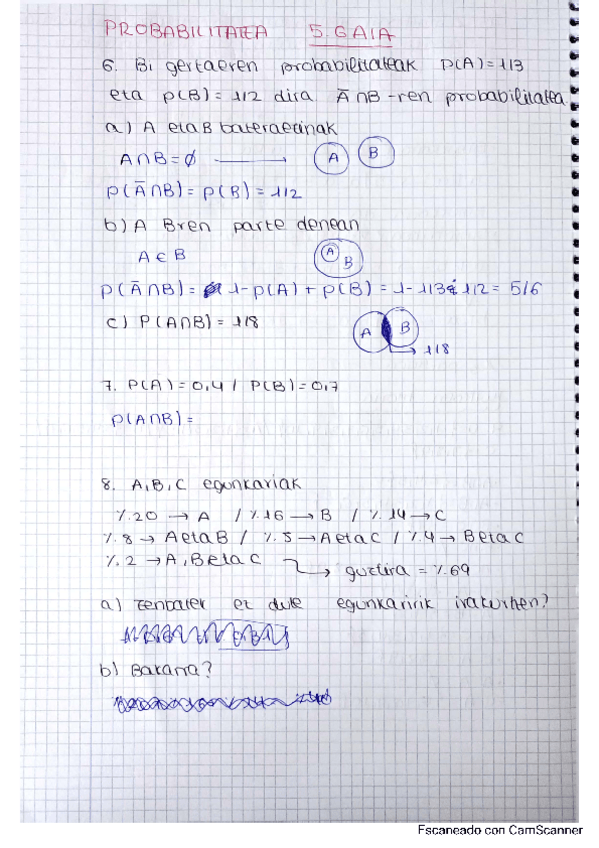 PROBABILITATEA 5. GAIA
6. Bi gertaeren probabilitateak P(A)=1/3
eta P(B)=1/2 dira Ā∩B-ren probabilitatea
a) A eta B bateraezinak
A∩B=∅ → A B
P(Ā∩B)=P(B)=1/2
b) A Bren parte denean
A∈B A B
P(Ā∩B)= 1-P(A)+P(B)=1-1/3 1/2=5/6
c) P(A∩B)=1/8 A B
→ 1/8
7. P(A)=0,4 / P(B)=0,7
P(A∩B)=
8. A, B, C egunkariak
%20 → A / %16 → B / %14 → C
%8 → A eta B / %5 → A eta C / %4 → B eta C
%2 → A, B eta C → guztira = %69
a) Zenbatek ez dute egunkaririk irakurtzen?
b) Bakarra?
Escaneado con CamScanner